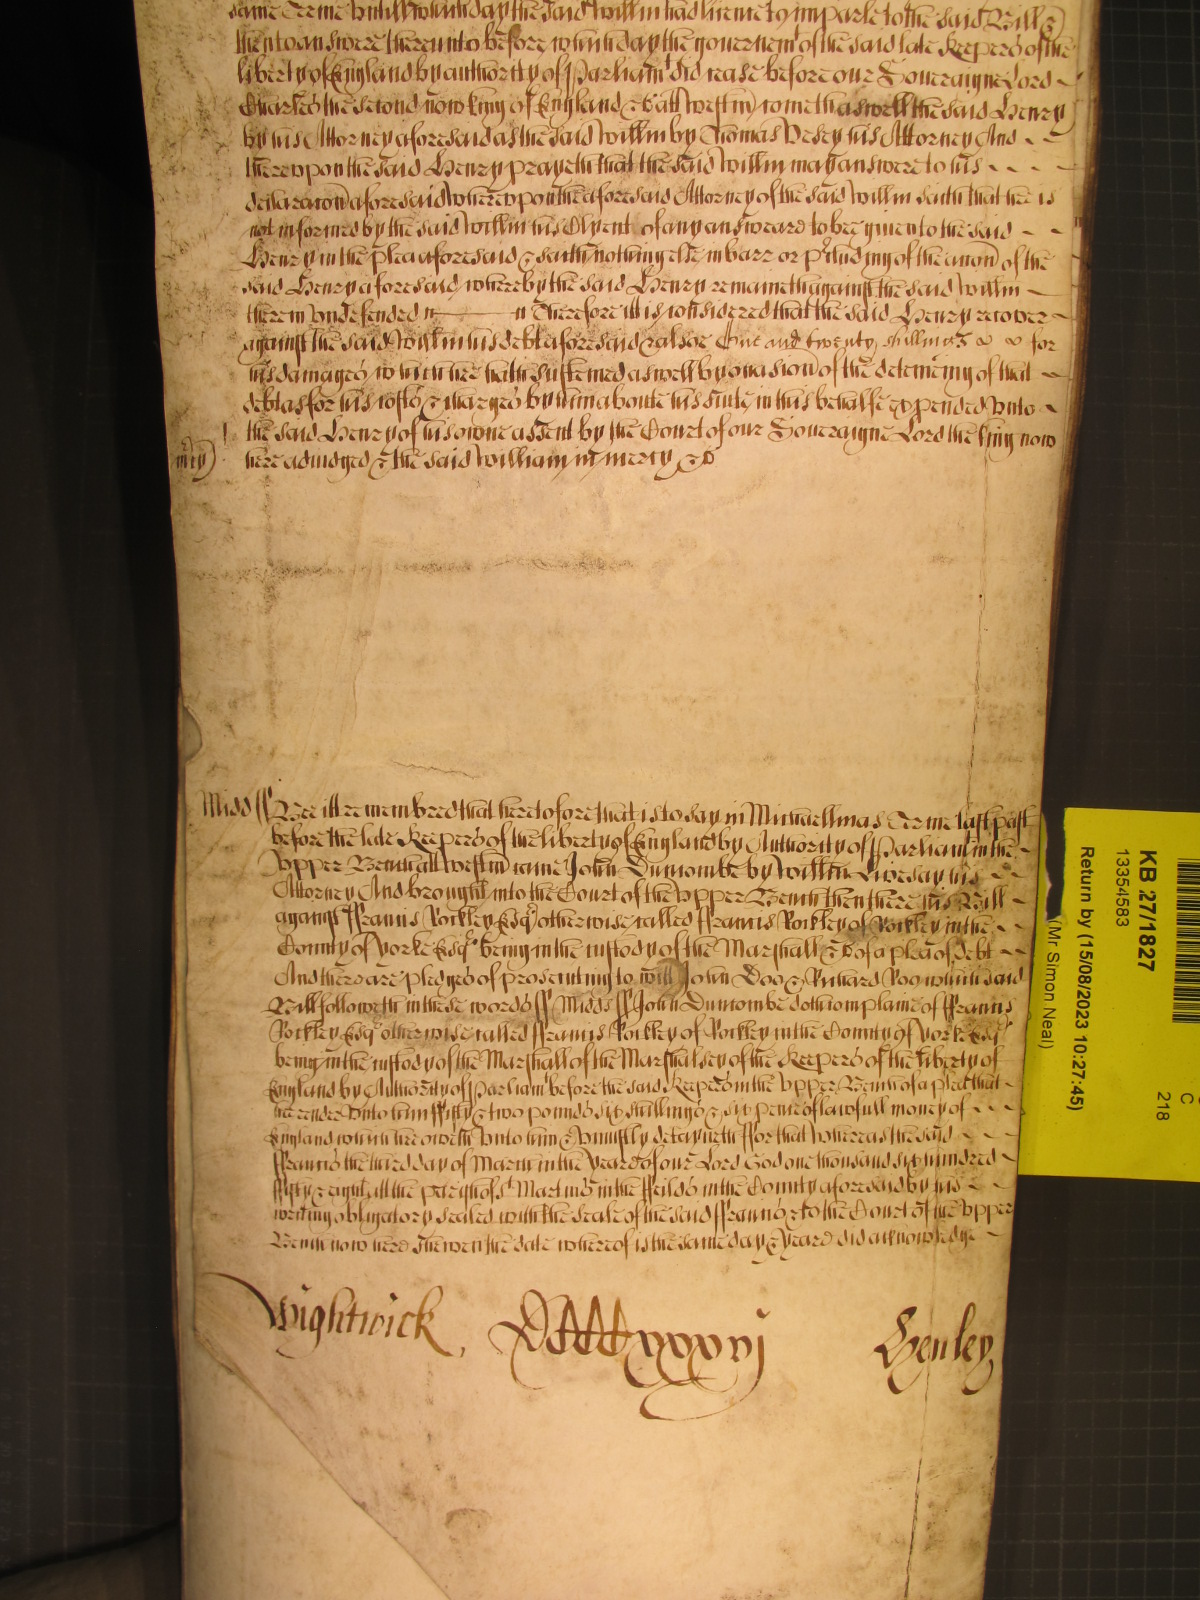 same Terme untill which day the said Willm had licence to imparle to the said Bill &
then to answere thereunto before which day the government of the said late Keepers of the
liberty of England by authority of Parliamt did cease before our Soveraigne Lord
Charles the second now King of England &c att Westm cometh aswell the said Henry
by his Attorney aforesaid as the said Willm by Thomas Vesey his Attorney And
thereupon the said Henry prayeth that the said Willm may answere to his
declaracon aforesaid whereupon the aforesaid Attorney of the said Willm saith that hee is
not informed by the said Willm his Clyent of any answeare to bee given to the said
Henry in the plea aforesaid & saith nothing else in barr or pcluding of the accon of the
said Henry aforesaid whereby the said Henry remaineth against the said Willm
therein undefended Therefore itt is considered that the said Henry recover
against the said Willm his debt aforesaid & alsoe One and twenty shillings for
his damages which hee hath susteined aswell by occasion of the deteineing of that
debt as for his costs & charges by him aboute his suite in this behalfe expended unto
the said Henry of his owne assent by the Court of our Soveraigne Lord the King now
mcy here adiudged & the said William in mercy &c
Midd ss Bee itt remembred that heretofore that is to say in Michaellmas Terme last past
before the late Keepers of the liberty of England by Authority of Parliamt in the
Upper Bench att Westm came John Duncombe by Willm Livesay his
Attorney And brought into the Court of the Upper Bench then there his Bill
against Ffrancis Rockley Esqr otherwise called Ffrancis Rockley of Rockley in the
County of Yorke Esqr being in the custody of the Marshall &c of a plea of debt
And there are pledges of prosecuting to witt John Doo & Richard Roo which said
Bill followeth in these words ss Midds ss John Duncombe doth complaine of Ffrancis
Rockley Esqr otherwise called Ffrancis Rockley of Rockley in the County of Yorke Esqr
being in the custody of the Marshall of the Marshalsey of the Keepers of the liberty of
England by Authority of Parliamt before the said Keepers in the Upper Bench of a plea that
hee render unto him Ffifty & two pounds six shillings & six pence of lawfull money of
England which hee oweth unto him & uniustly deteyneth Ffor that whereas the said
Ffrancis the third day of March in the yeare of our Lord God one thousand six hundred
ffifty & eight att the parish of St Martins in the Ffeilds in the County aforesaid by his
writing obligatory sealed with the seale of the said Ffrancis & to the Court of the Upper
Bench now here shewen the date whereof is the same day & yeare did acknowledge
Wightwick
xxxvj
Henley
KB 27/1827
13354583
Return by (15/08/2023 10:27:45)
(Mr Simon Neal)
C
218